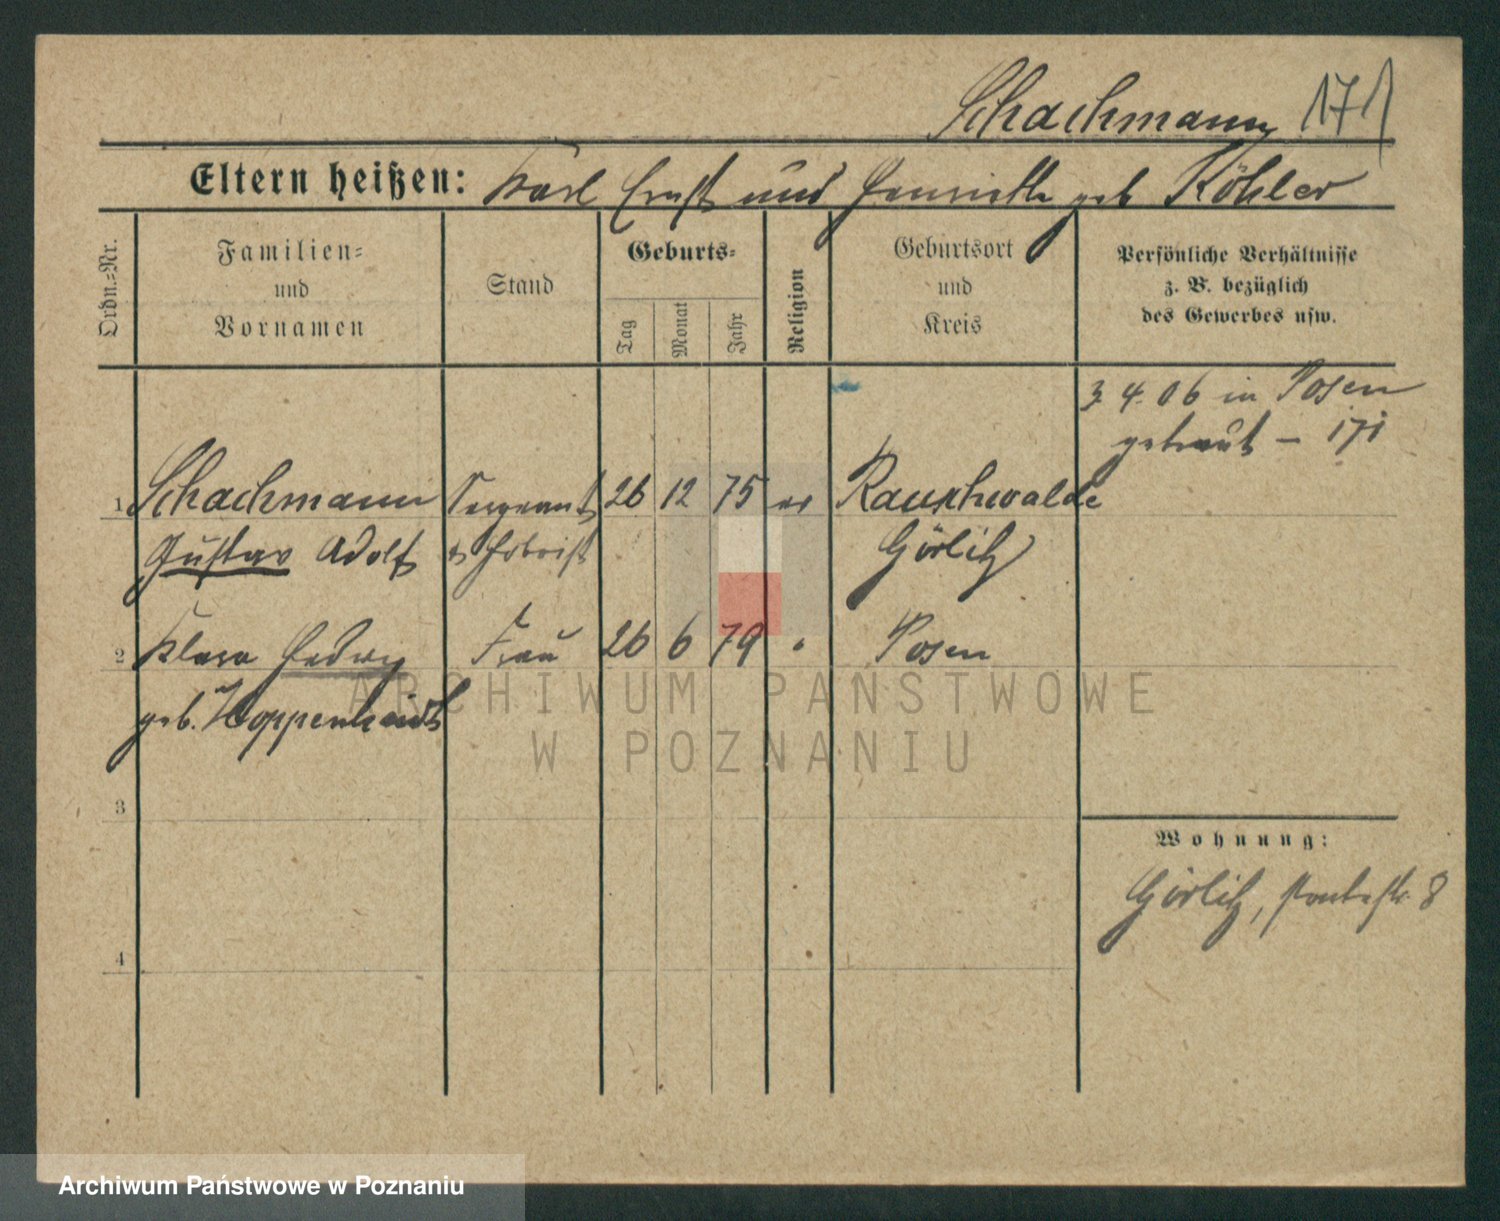 Schachmann 171
Eltern heißen: Karl Ernst und Henriette geb Köhler
Ordn.-Nr.
Familien-
und
Vornamen
Stand
Geburts-
Tag
Monat
Jahr
Religion
Geburtsort
und
Kreis
Persönliche Verhältnisse
z. B. bezüglich
des Gewerbes usw.
3. 4. 06 in Posen
getraut – 171
1 Schachmann Sergeant 26 12 75 ev Rauschwalde
Gustav Adolf Hoboist Görlitz
2 Klara Hedwig Frau 26 6 79 " Posen
geb. Hoppenheidt
3
4
Wohnung:
Görlitz, 8
ARCHIWUM PAŃSTWOWE
W POZNANIU
Archiwum Państwowe w Poznaniu